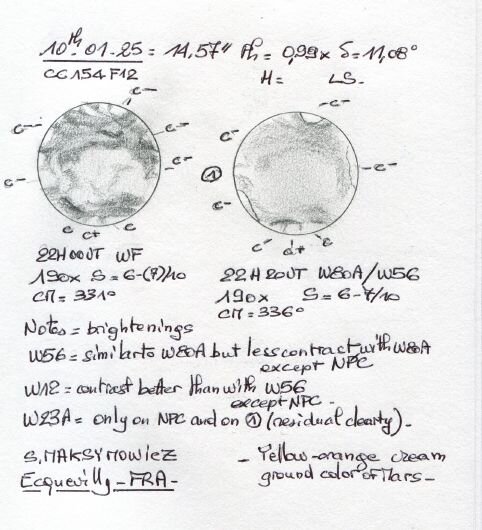 10th.01.25 = 14,57" Ph = 0,99x δ = 11,08°
CC154F12 H = LS-
c- c- c- c- c- c c+ c
-c- c- -c- c- c- d+ c
①
22H00UT WF
190x S = 6-(7)/10
CM = 331°
22H20UT W80A/W56
190x S = 6-7/10
CM = 336°
Notes = brightenings
W56 = similar to W80A but less contract with W80A
except NPC
W12 = contrast better than with W56
except NPC-
W23A = only on NPC and on ① (residual clearty)-
S. MAKSYMOWICZ
Ecquevilly-FRA-
- Yellow-orange cream
ground color of Mars-